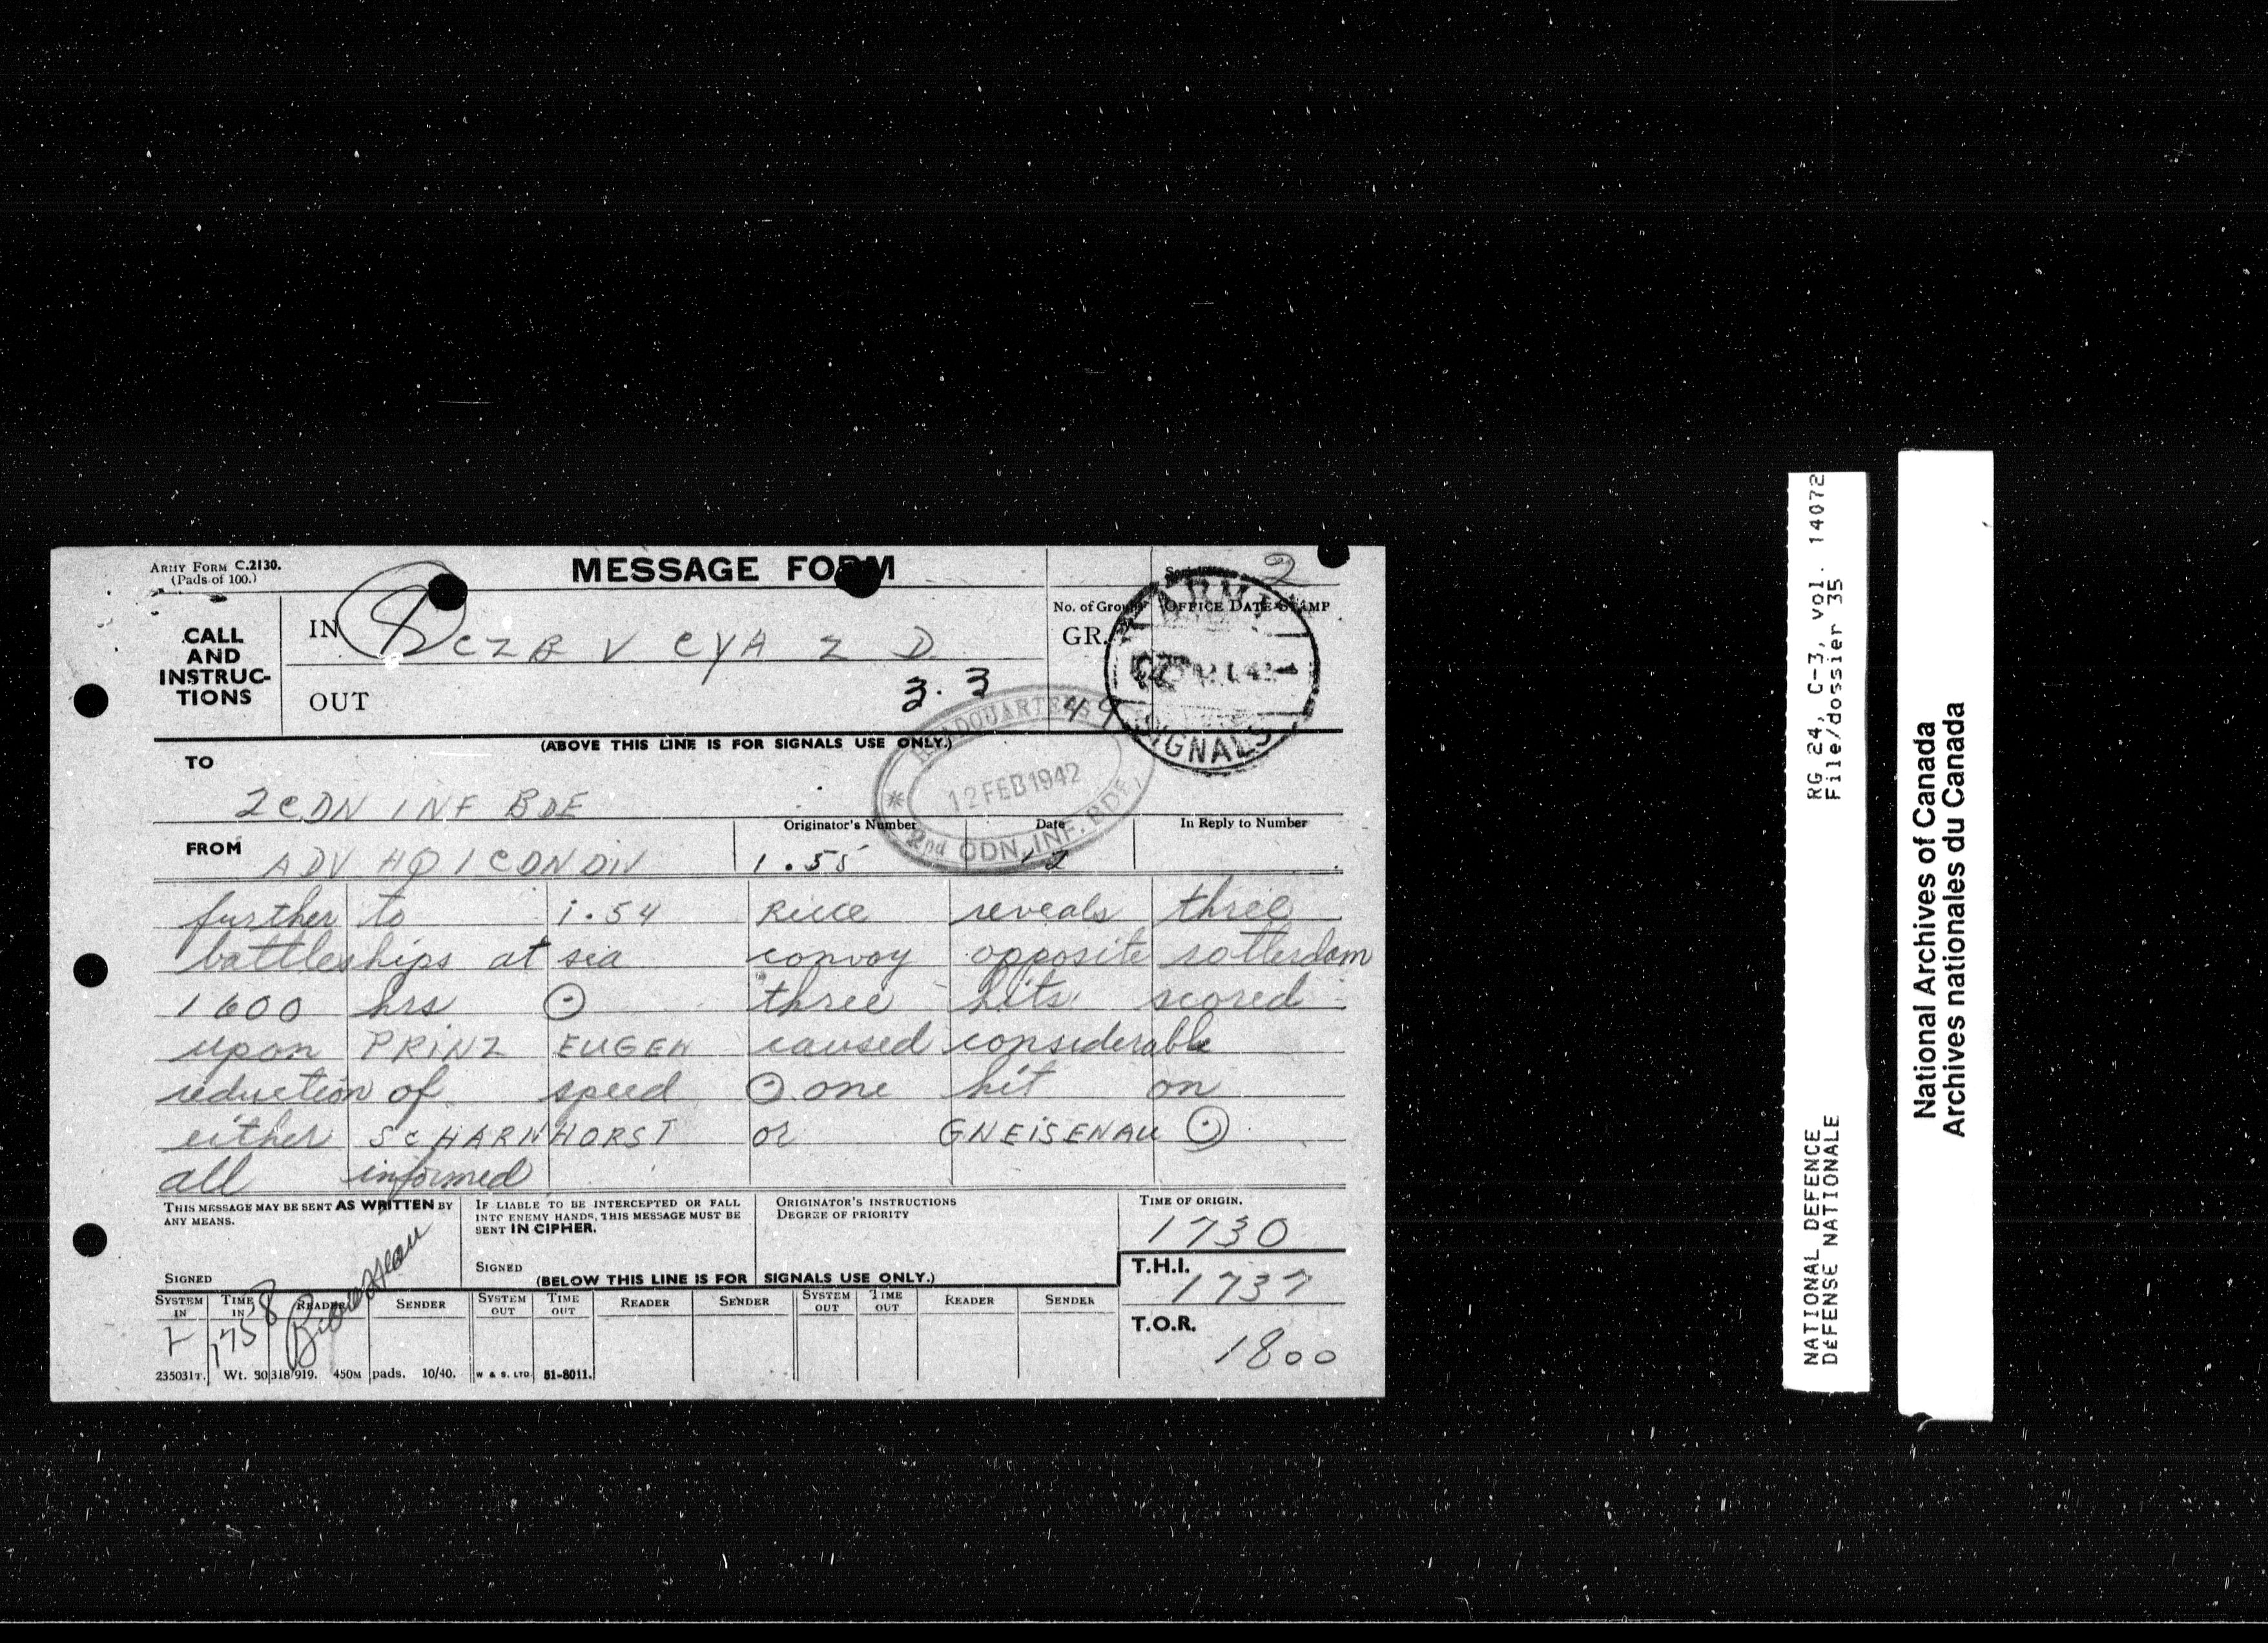 ARMY FORM C.2130.
(Pads of 100.)
MESSAGE FORM
2
CALL AND INSTRUC-TIONS
IN
8
CZB V CYA Z D
No. of Groups
GR.
OFFICE DATE STAMP
ARMY
SIGNALS
OUT
3.3
49
(ABOVE THIS LINE IS FOR SIGNALS USE ONLY.)
HEADQUARTERS
12 FEB 1942
2nd CDN. INF. BDE.
TO
2 CDN INF BDE
FROM
ADV HQ 1 CDN DIV
Originator's Number
1.55
Date
12
In Reply to Number
further to i.54 Recce reveals three
battleships at sea convoy opposite rotterdam
1600 hrs ⊙ three hits scored
upon PRINZ EUGEN caused considerable
reduction of speed ⊙ one hit on
either SCHARNHORST or GNEISENAU ⊙
all informed
THIS MESSAGE MAY BE SENT AS WRITTEN BY
ANY MEANS.
SIGNED
IF LIABLE TO BE INTERCEPTED OR FALL
INTO ENEMY HANDS, THIS MESSAGE MUST BE
SENT IN CIPHER.
SIGNED
ORIGINATOR'S INSTRUCTIONS
DEGREE OF PRIORITY
TIME OF ORIGIN.
1730
T.H.I.
1737
T.O.R.
1800
(BELOW THIS LINE IS FOR SIGNALS USE ONLY.)
SYSTEM IN TIME IN READER SENDER SYSTEM OUT TIME OUT READER SENDER SYSTEM OUT TIME OUT READER SENDER
1758
235031T. Wt. 30318/919. 450M pads. 10/40. W & S. LTD. 51-8011.
RG 24, C-3, vol. 14072
File/dossier 35
NATIONAL DEFENCE
DÉFENSE NATIONALE
National Archives of Canada
Archives nationales du Canada